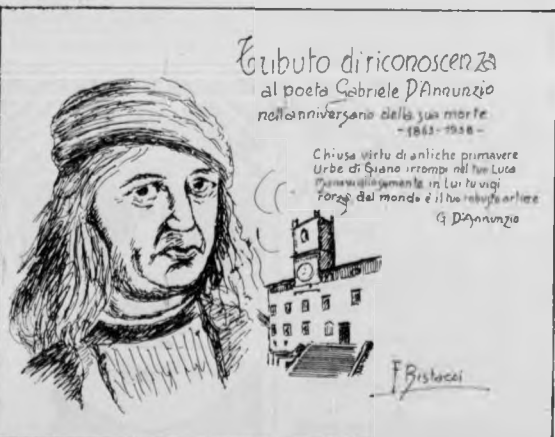 Tributo di riconoscenza
al poeta Gabriele D'Annunzio
nell'anniversario della sua morte
- 1863 - 1938 -
Chiusa virtu di antiche primavere
Urbe di Giano irrompi nel tuo Luca
in Lui tu vigi
Forza del mondo è il tuo artiere
G D'Annunzio
F Bistacci